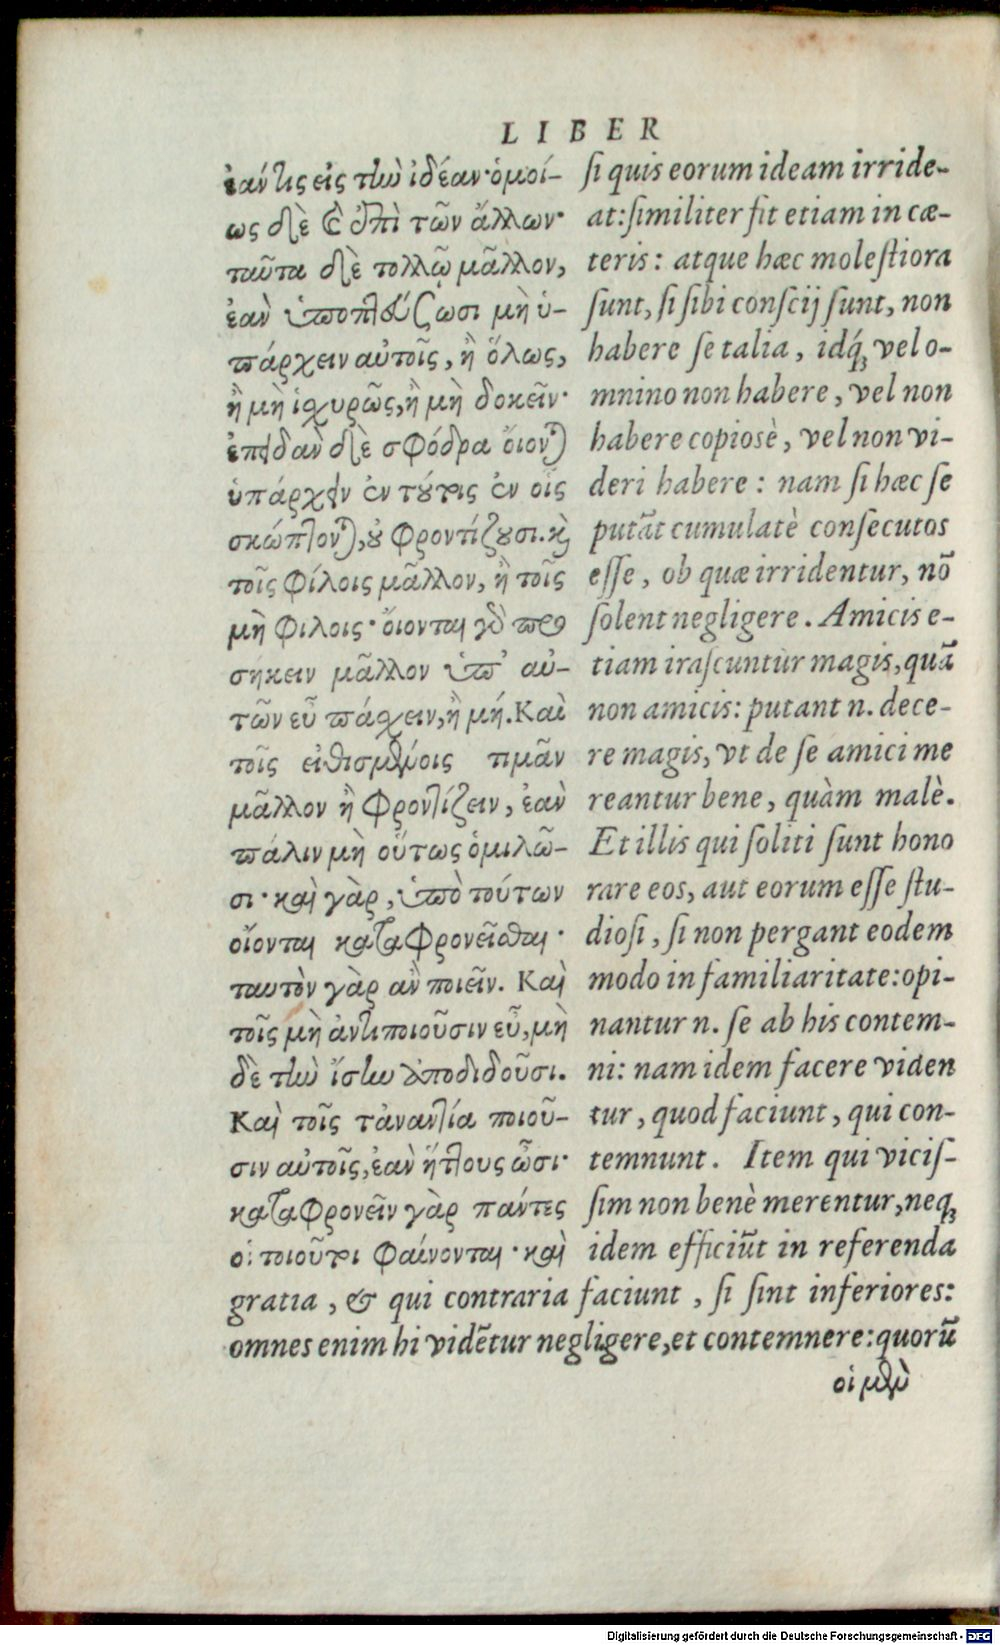 LIBER
ἐάν τις εἰς τὴν ἰδέαν· ὁμοί-
ως δὲ καὶ ἐπὶ τῶν ἄλλων·
ταῦτα δὲ πολλῷ μᾶλλον,
ἐὰν ὑποπτεύζωσι μὴ ὑ-
πάρχειν αὐτοῖς, ἢ ὅλως,
ἢ μὴ ἰσχυρῶς, ἢ μὴ δοκεῖν·
ἐπειδὰν δὲ σφόδρα οἴονται
ὑπάρχειν ἐν τούτοις ἐν οἷς
σκώπτονται, οὐ φροντίζουσι. καὶ
τοῖς φίλοις μᾶλλον, ἢ τοῖς
μὴ φίλοις· οἴονται γὰρ προσ
σήκειν μᾶλλον ὑπ’ αὐ-
τῶν εὖ πάσχειν, ἢ μή. Καὶ
τοῖς εἰθισμένοις τιμᾶν
μᾶλλον ἢ φροντίζειν, ἐὰν
πάλιν μὴ οὕτως ὁμιλῶ-
σι· καὶ γὰρ, ὑπὸ τούτων
οἴονται καταφρονεῖσθαι·
ταυτὸν γὰρ ἂν ποιεῖν. Καὶ
τοῖς μὴ ἀντιποιοῦσιν εὖ, μὴ
δὲ τὴν ἴσην ἀποδιδοῦσι.
Καὶ τοῖς τἀναντία ποιοῦ-
σιν αὐτοῖς, ἐὰν ἥττους ὦσι·
καταφρονεῖν γὰρ πάντες
οἱ τοιοῦτοι φαίνονται· καὶ
si quis eorum ideam irride-
at: similiter fit etiam in cæ-
teris: atque hæc molestiora
sunt, si sibi conscij sunt, non
habere se talia, idq́ꝫ vel o-
mnino non habere, vel non
habere copiosè, vel non vi-
deri habere: nam si hæc se
putãt cumulatè consecutos
esse, ob quæ irridentur, nõ
solent negligere. Amicis e-
tiam irascuntur magis, quã
non amicis: putant n. dece-
re magis, vt de se amici me
reantur bene, quàm malè.
Et illis qui soliti sunt hono
rare eos, aut eorum esse stu-
diosi, si non pergant eodem
modo in familiaritate: opi-
nantur n. se ab his contem-
ni: nam idem facere viden
tur, quod faciunt, qui con-
temnunt. Item qui vicis-
sim non benè merentur, neqꝫ
idem efficiũt in referenda
gratia, & qui contraria faciunt, si sint inferiores:
omnes enim hi vidẽtur negligere, et contemnere: quorũ
οἱ μὲν
Digitalisierung gefördert durch die Deutsche Forschungsgemeinschaft - DFG